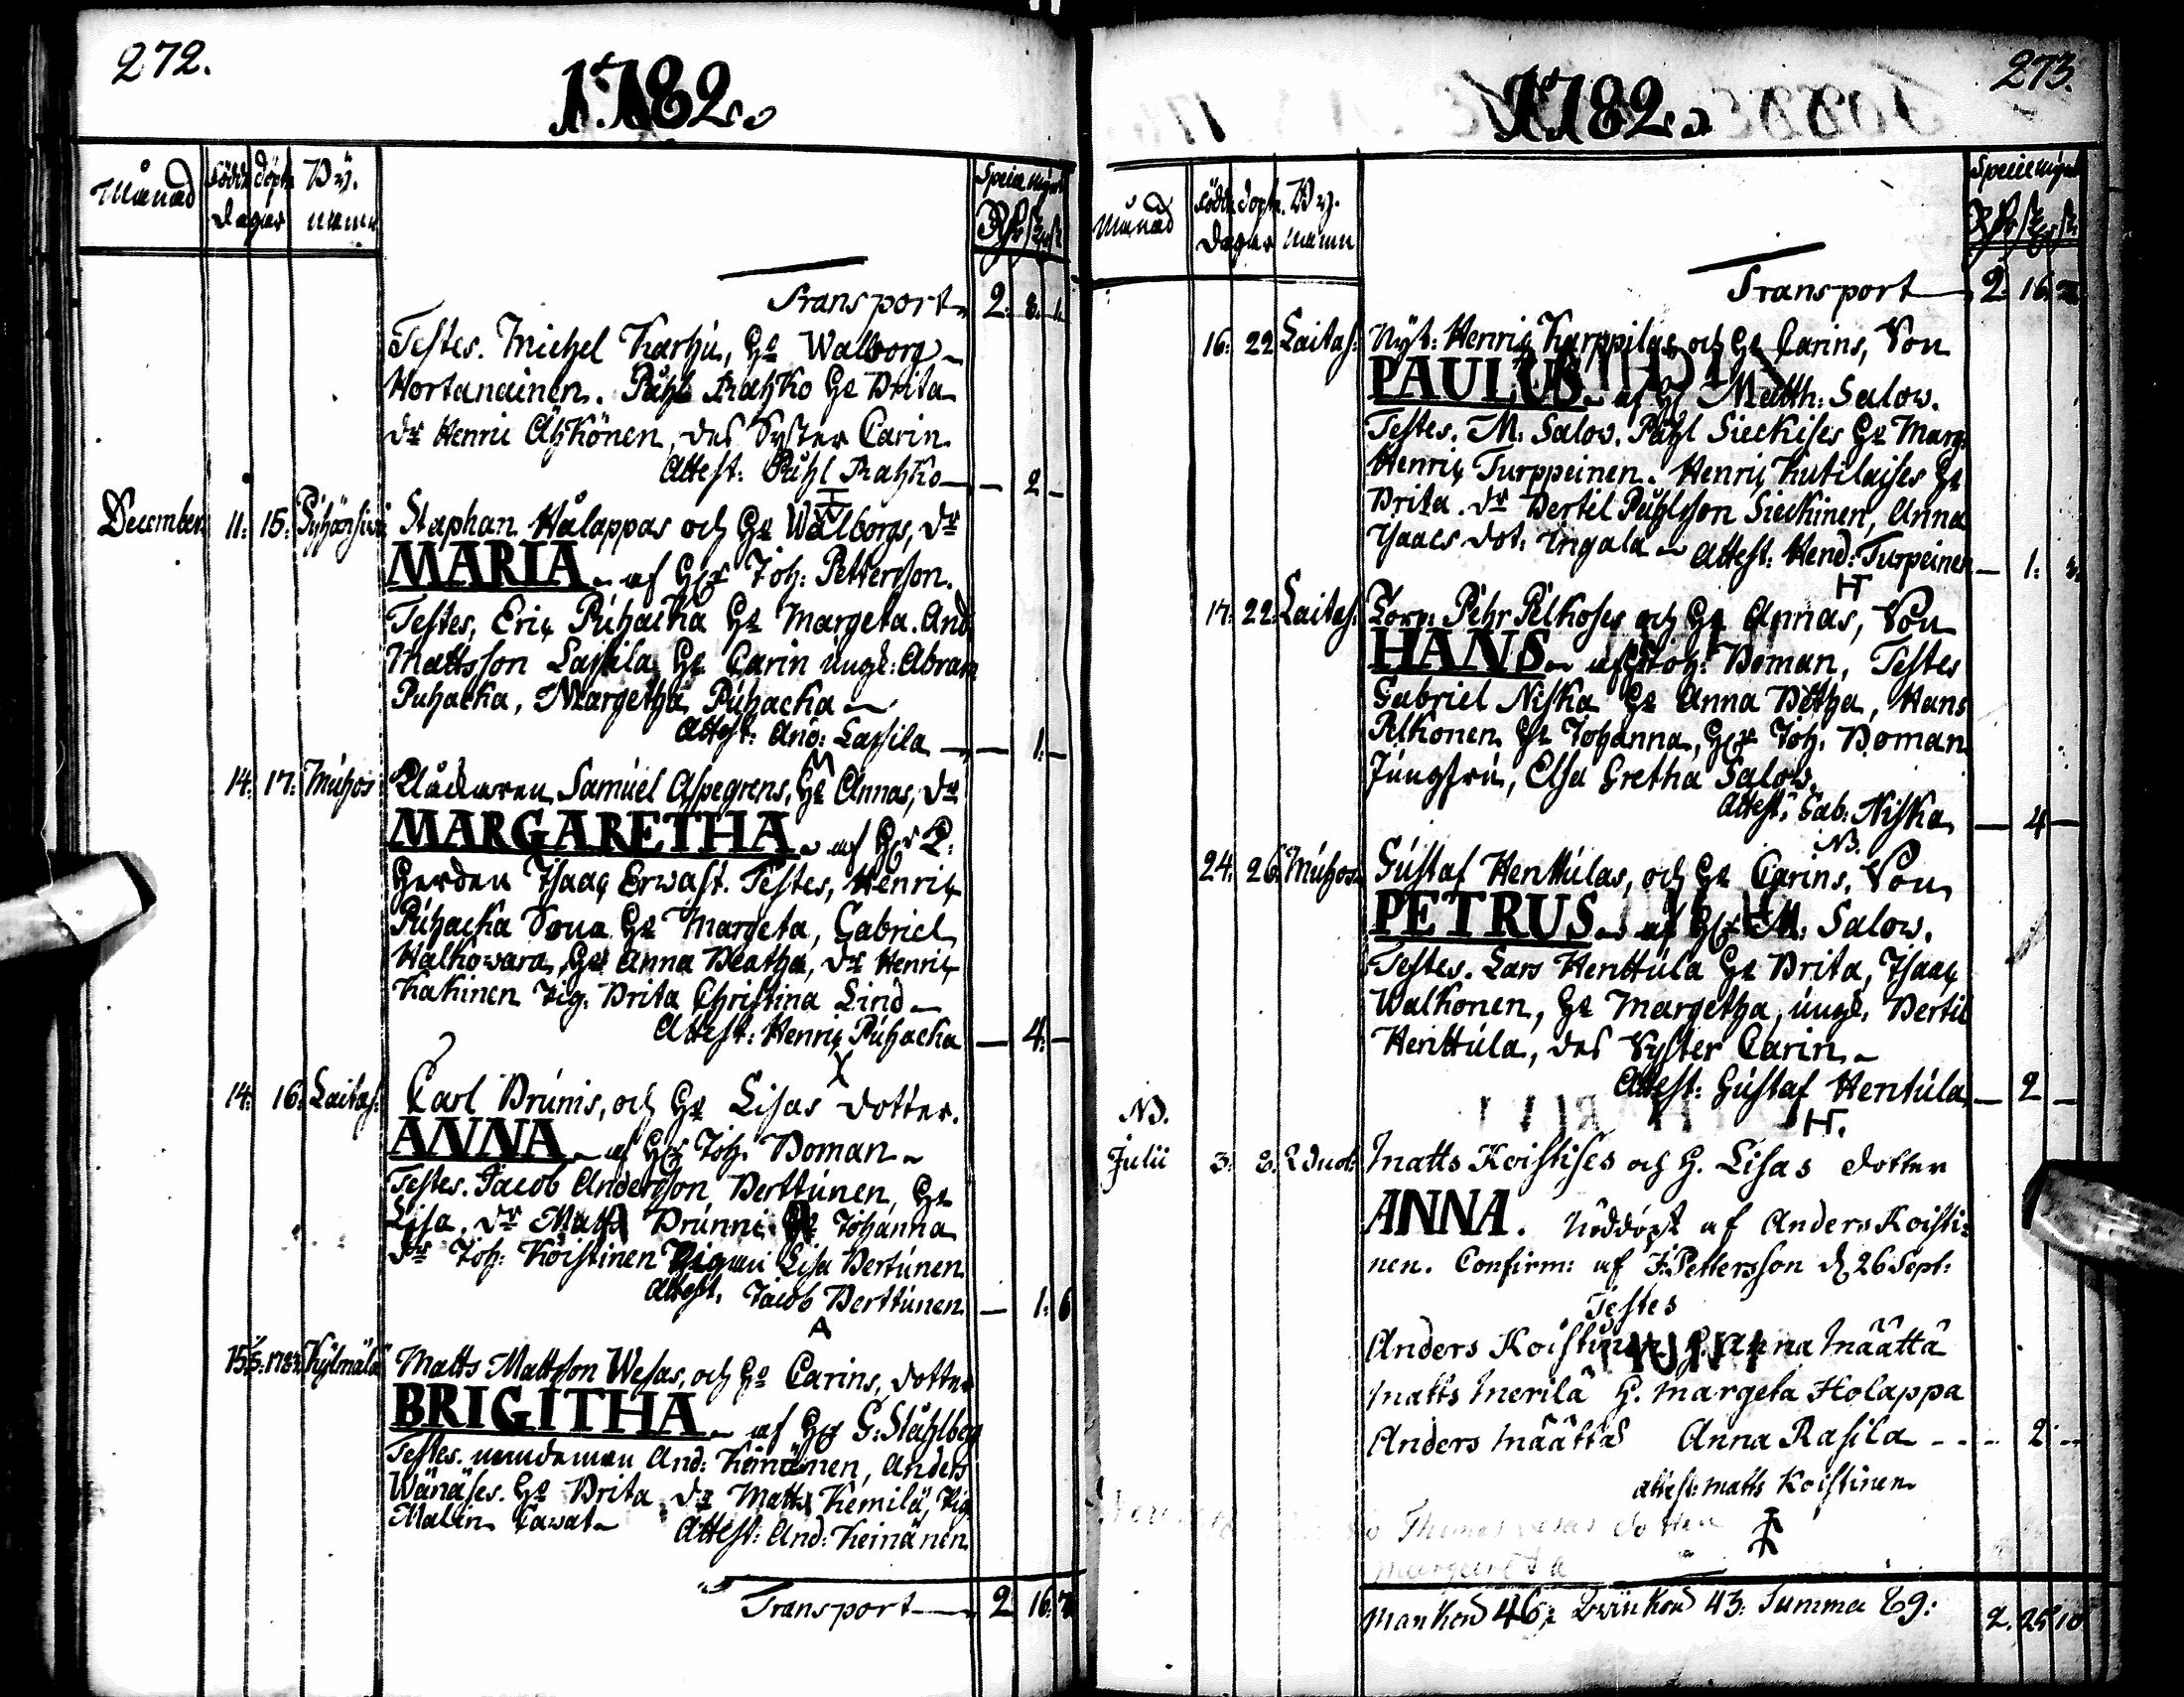 272.
1782.
Månad
Födde döpte
dagar
By.
namn
Specie mynt
Transport 2. 8. 1.
Testes. Michel Karhu, Hu Walborg
Hortanainen. Påhl Rahko Hu Brita
dr Henric Ahkönen, das Syster Carin.
Attest: Påhl Rahko — 2 —
December 11. 15. Pyhänsiwu Staphan Hålappas och Hu Walborgs, dr
MARIA af Hr Joh: Pettersson.
Testes, Eric Puhacka Hu Margeta. And:
Mattsson Lassila Hu Carin ungk: Abram
Puhacka, Margetha Puhacka
Attest: And: Lassila — 1. —
14. 17. Muhos Rådaren Samuel Aspegrens, Hu Annas, dr
MARGARETHA af Hr P:
Herden Isaac Erwast. Testes, Henric
Puhacka Sona Hu Margeta, Gabriel
Halkowara, Hu Anna Beatha, dr Henric
Kakinen Pig: Brita Christina Lind
Attest: Henric Puhacka — 4. —
14. 16. Laitas: Carl Brunis, och Hu Lisas dotter.
ANNA af Hr Joh: Boman
Testes. Jacob Andersson Berttunen, Hu
Lisa. dr Matts Brunni Hu Johanna
dr Joh: Koistinen Pigan Lisa Bertunen
Attest. Jacob Berttunen — 1. 6
Kylmälä Matts Mattsson Wesas, och Hu Carins, dotter
BRIGITHA af Hr G: Ståhlberg
Testes. nemdeman And: Keinänen, Anders
Wänäses. Hu Brita, dr Matts Kemilä, Pig
Malin Cawat Attest: And: Keinänen
Transport 2 16.
273.
1782.
Månad
Födde döpte.
dagar
By.
namn
Specie mynt
Transport 2. 16.
16. 22 Laitas: Nyb: Henric Karppilas och Hu Carins, Son
PAULUS af Hr Matth: Salow.
Testes. M: Salow. Påhl Sieckises Hu Marg:
Henric Turppeinen. Henric Kutilaises Hu
Brita. dr Bertil Påhlsson Sieckinen, Anna
Isaacs dot: Ingala Attest: Hend: Turpeinen — 1.
17. 22. Laitas: Torp: Pehr Pelkoses och Hu Annas, Son
HANS af Hr Joh: Boman, Testes
Gabriel Niska Hu Anna Betha, Hans
Pelkonen Hu Johanna, Hr Joh. Boman
Jungfru, Elsa Gretha Salow.
Attest: Gab: Niska — 4 —
24. 26. Muhos Gustaf Henttulas, och Hu Carins, Son
PETRUS af Hr M: Salow.
Testes. Lars Henttula Hu Brita, Isaac
Walkonen, Hu Margetha, ungk. Bertil
Henttula, das Syster Carin
Attest: Gustaf Hentula — 2 —
NB.
Julii 3. 8. Matts Koistises och H. Lisas dotter
ANNA. Nöddöpt af Anders Koisti-
nen. Confirm: af J: Pettersson d 26 Sept:
Testes
Anders Koistinen H. Anna Määttä
Matts Merilä H. Margeta Holappa
Anders Määttä Anna Rasila - - - 2 -
attest: Matts Koistinen
Thomas dotter
Margareta
Mankön 46; Qwinkön 43: Summa 89: 2. 25 10